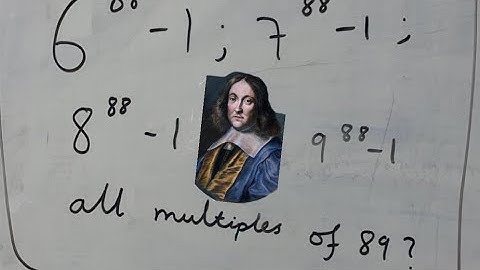 6^88 - 1 ; 7^88 - 1 ;
8^88 - 1 9^88 - 1
all multiples of 89?